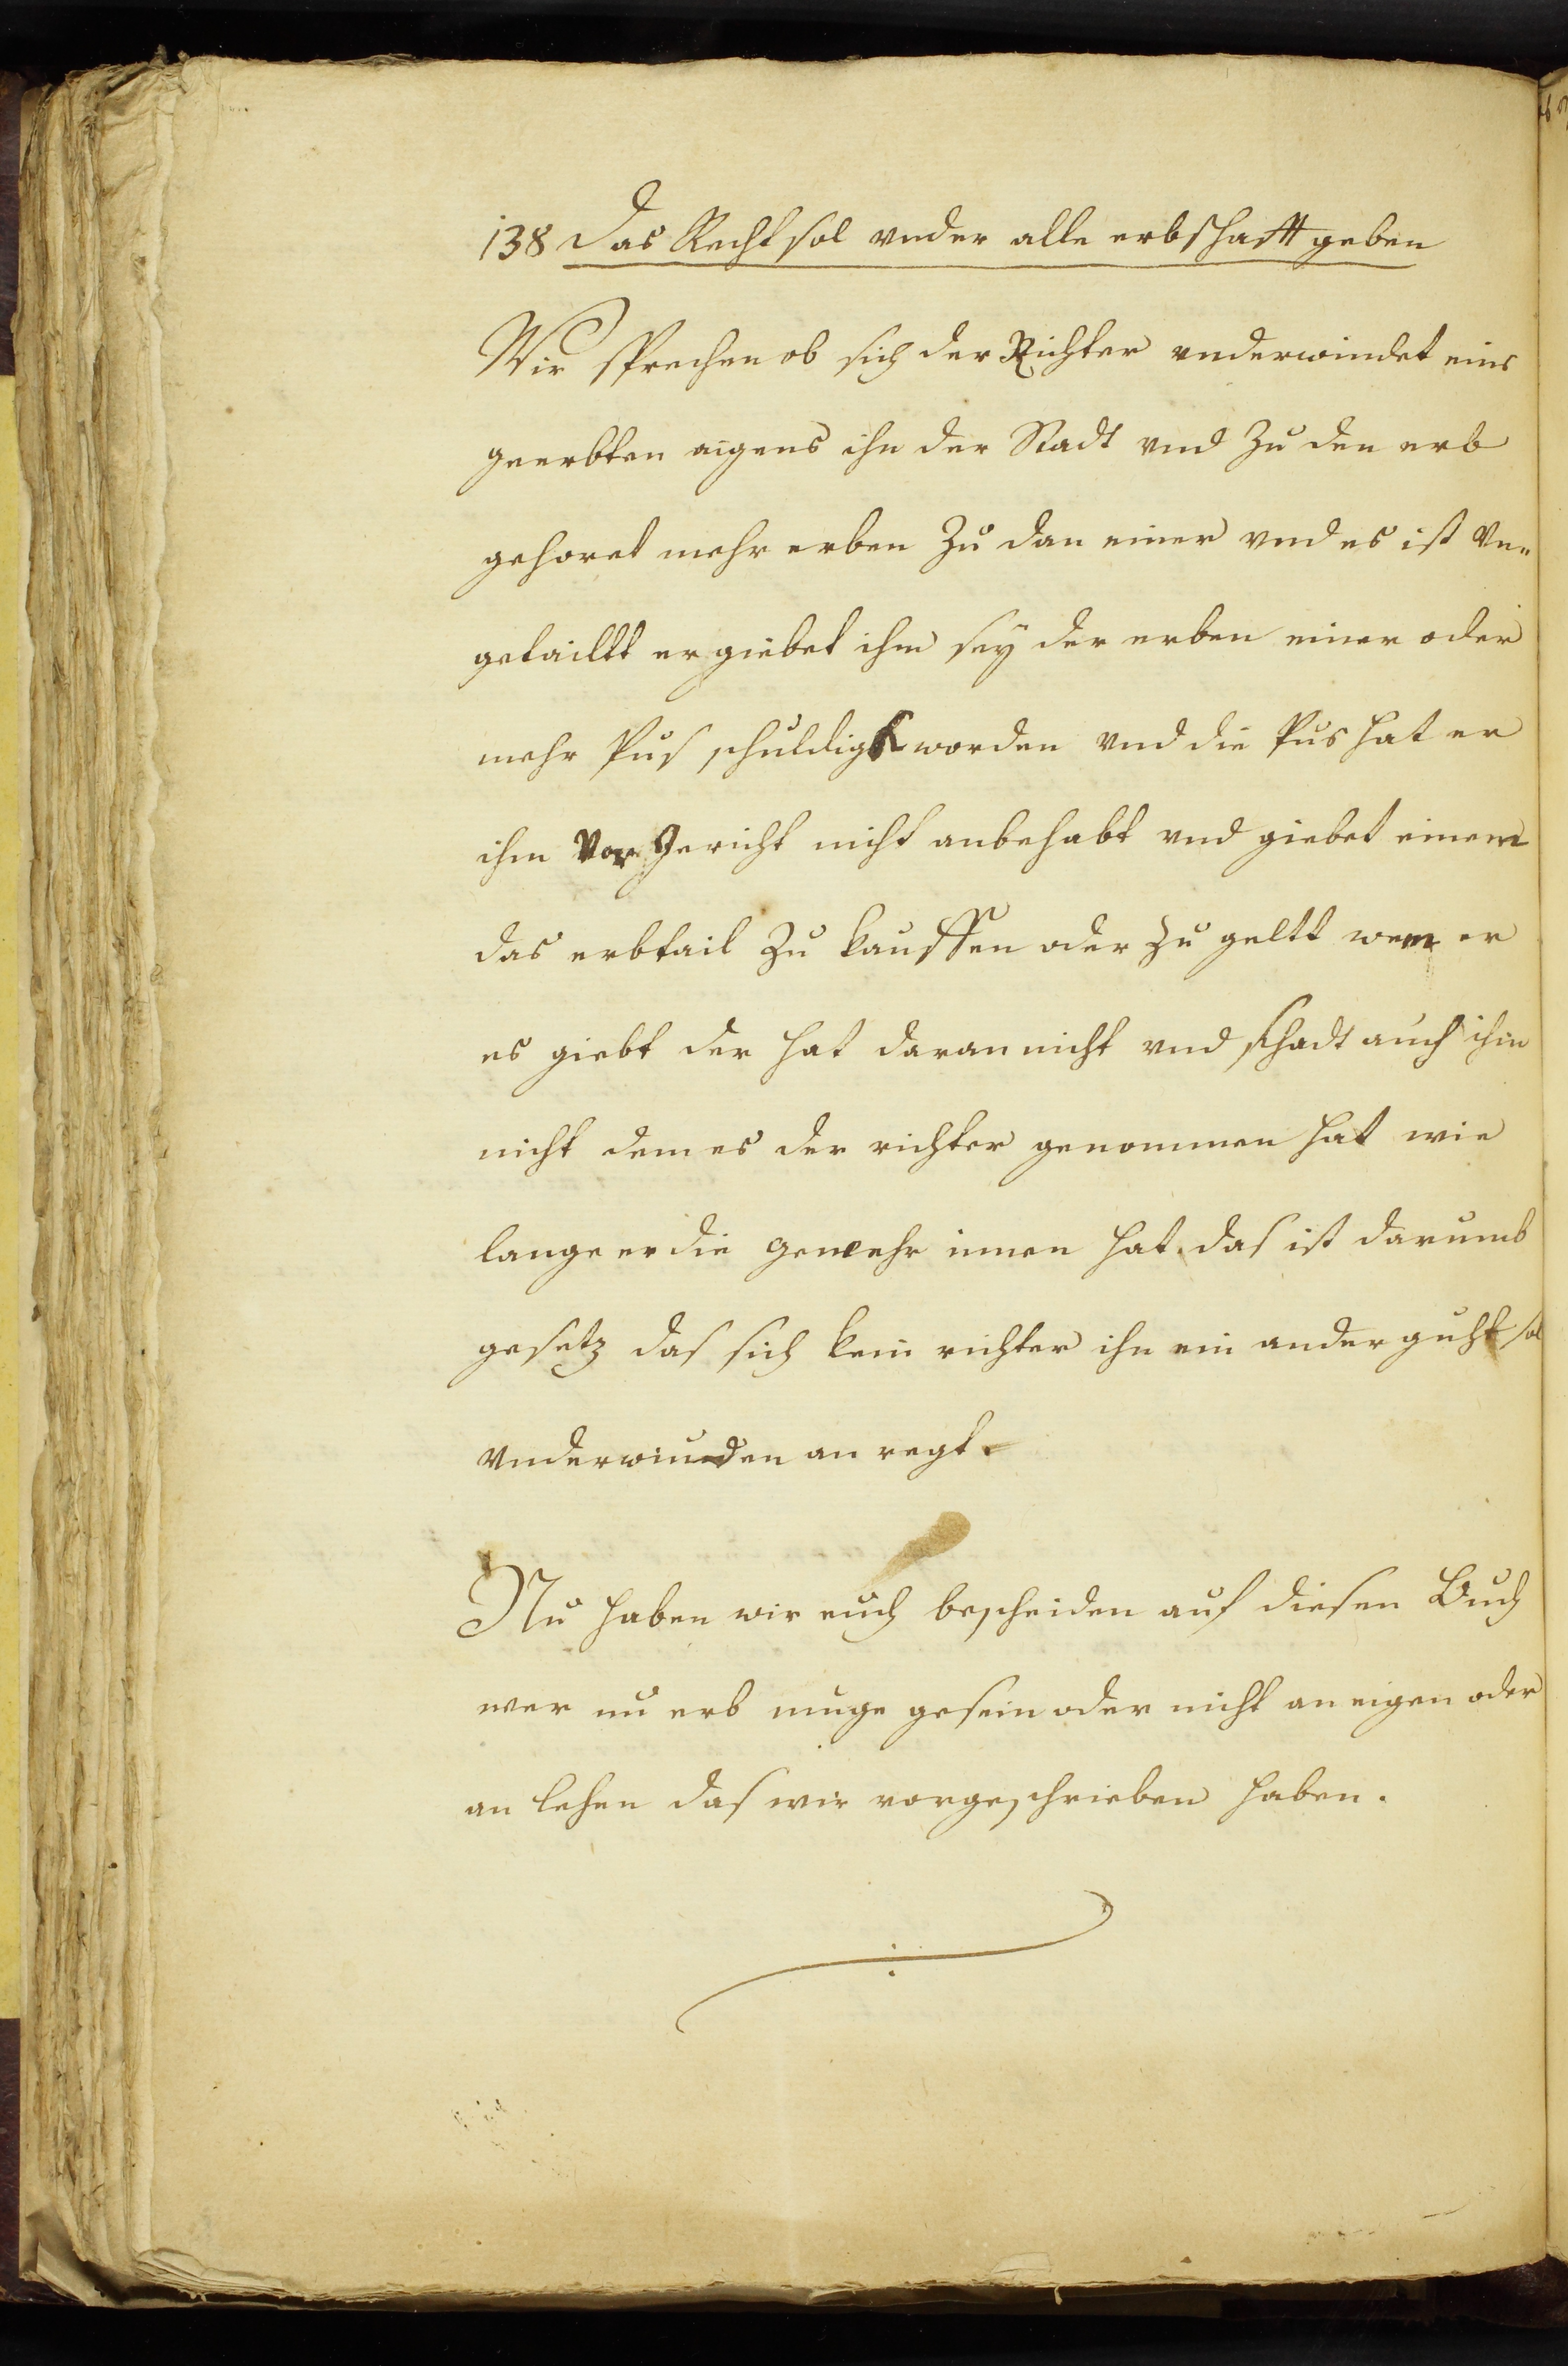 138 Das Recht sol vnder alle erbschafft geben
Wir sprechen ob sich der Richter vnderwindet eins
geerbten aigens ihn der Stadt vnd zu den erb
gehoret mehr erben zu dan einer vnd es ist Vn=
getailtt er giebet ihm seÿ der erben einer oder
mehr Pus schuldig worden vnd die Pus hat er
ihm Vor Gericht nicht anbehabt vnd giebet einem
das erbtail zu kauffen oder zu geltt wem er
es giebt der hat daran nicht vnd schadt auch ihm
nicht dem es der richter genommen hat wie
lange er die gewehr innen hat. das ist darumb
gesetz das sich kein richter ihn ein ander guht sol
Vnderwinden an regt.
Nu haben wir euch bescheiden auf diesen Buch
wer nu erb muge gesein oder nicht an eigen oder
an lehen das wir vorgeschrieben haben.